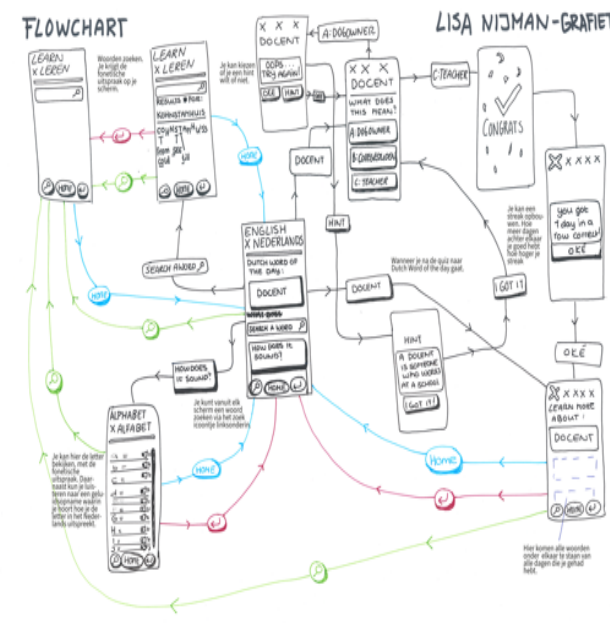 FLOWCHART
LISA NIJMAN-GRAFIET
LEARN
X LEREN
Woorden zoeken.
Je krijgt de
fonetische
uitspraak op je
scherm.
LEARN
X LEREN
RESULTS FOR:
HOME
Je kan kiezen
of je een hint
wilt of niet.
X X X
DOCENT
OOPS...
TRY AGAIN!
OKÉ
HINT
A: DOGOWNER
X X X
DOCENT
WHAT DOES
THIS MEAN?
A: DOGOWNER
C: TEACHER
C: TEACHER
CONGRATS
X X X X
you got
1 day in a
row correct!
OKÉ
Je kan een
streak opbou-
wen. Hoe
meer dagen
achter elkaar
je goed hebt
hoe hoger je
streak
I GOT IT!
OKÉ
DOCENT
HINT
HOME
HOME
SEARCH A WORD
ENGLISH
X NEDERLANDS
DUTCH WORD OF
THE DAY:
DOCENT
SEARCH A WORD
HOW DOES IT
SOUND?
HOME
DOCENT
Wanneer je na de quiz naar
Dutch Word of the day gaat.
HINT
A DOCENT
IS SOMEONE
WHO WORKS
AT A SCHOOL
I GOT IT!
X X X X
LEARN MORE
ABOUT:
DOCENT
HOME
HOW DOES
IT SOUND?
Je kunt vanuit elk
scherm een woord
zoeken via het zoek
icoontje linksonderin.
ALPHABET
X ALFABET
HOME
Je kan hier de letter
bekijken, met de
fonetische
uitspraak. Daar-
naast kun je luis-
teren naar een gelu-
idsopname waarin
je hoort hoe je de
letter in het Neder-
lands uitspreekt.
HOME
Home
Hier komen alle woorden
onder elkaar te staan van
alle dagen die je gehad
hebt.